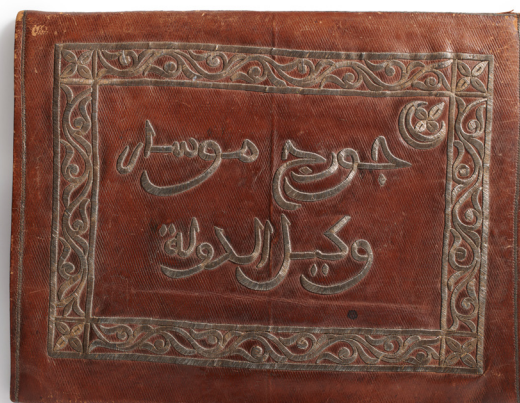 جورج موسار
وكيل الدولة